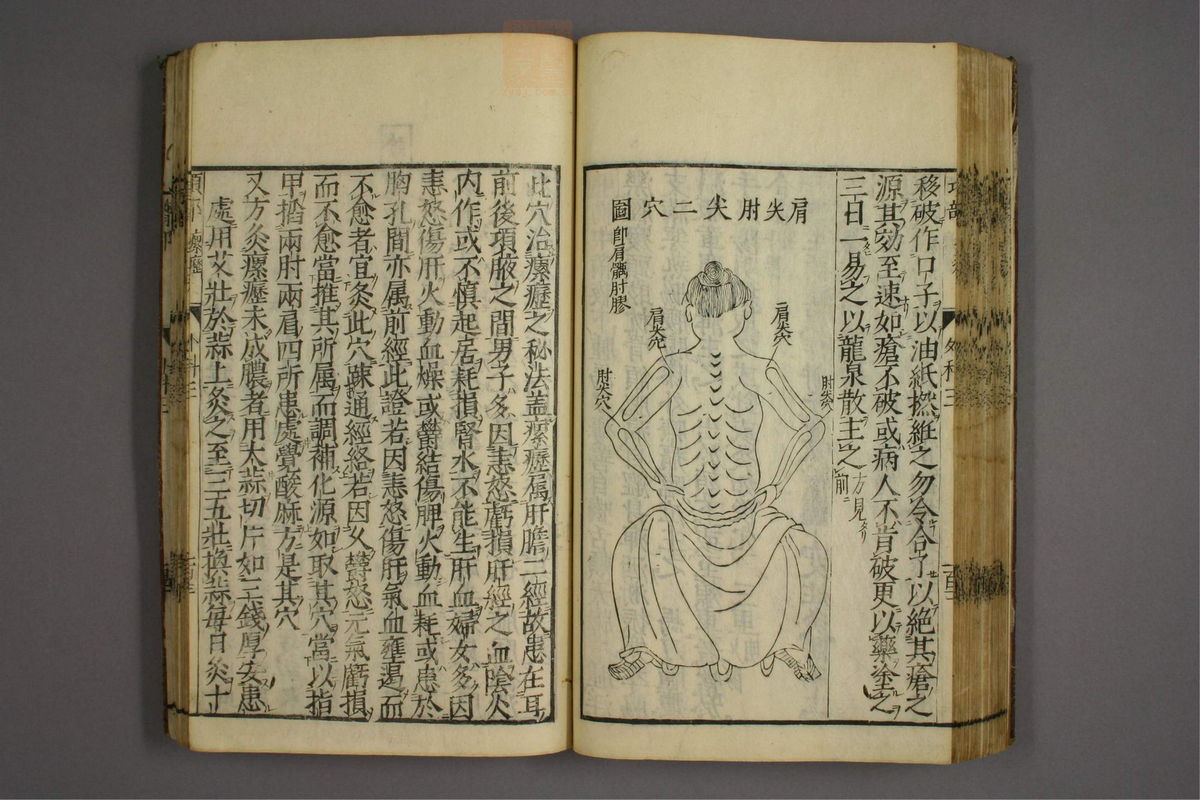 移破作口子以油紙撚維之勿令合了以絶其瘡之
源其効至速如瘡不破或病人不肯破更以藥塗之
三日一易之以龍泉散主之方見前
肩尖肘尖二穴圖
即肩髃肘膠
肩尖穴
肘尖穴
肩尖穴
肘尖穴
此穴治瘰癧之秘法蓋瘰癧属肝膽二經故患在耳
前後項腋之間男子多因恚怒虧損肝經之血陰火
内作或不慎起居耗損腎水不能生肝血婦女多因
恚怒傷肝火動血燥或欝結傷脾火動血耗或患於
胸乳間亦属前經此證若因恚怒傷肝氣血壅遏而
不愈者宜灸此穴踈通經絡若因久欝怒元氣虧損
而不愈當推其所属而調補化源如取其穴當以指
甲掐兩肘兩肩四所患處覺酸麻方是其穴
又方灸瘰癧未成膿者用大蒜切片如三錢厚安患
處用艾壯於蒜上灸之至三五壯換蒜每日灸十